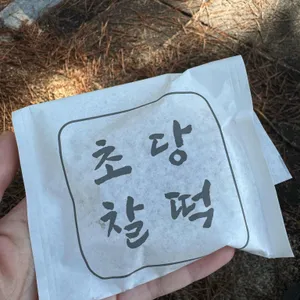 초당
찰떡